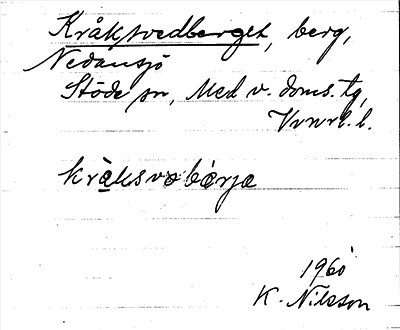 Kråksvedberget, berg,
Nedansjö
Stöde sn, Med v. doms. tg,
Vnrl. l.
kråksvebærjæ
1960
K. Nilsson